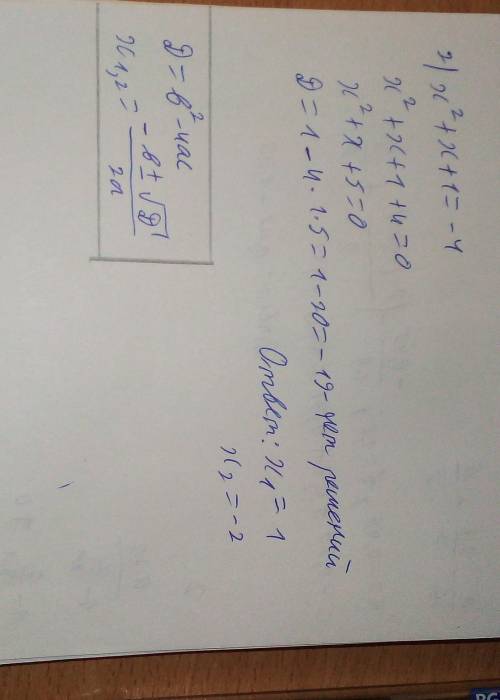 2) x² + x + 1 = -4
x² + x + 1 + 4 = 0
x² + x + 5 = 0
D = 1 - 4 · 1 · 5 = 1 - 20 = -19 - нет решений
Ответ: x₁ = 1
x₂ = -2
D = b² - 4ac
x₁,₂ = (-b ± √D) / 2a